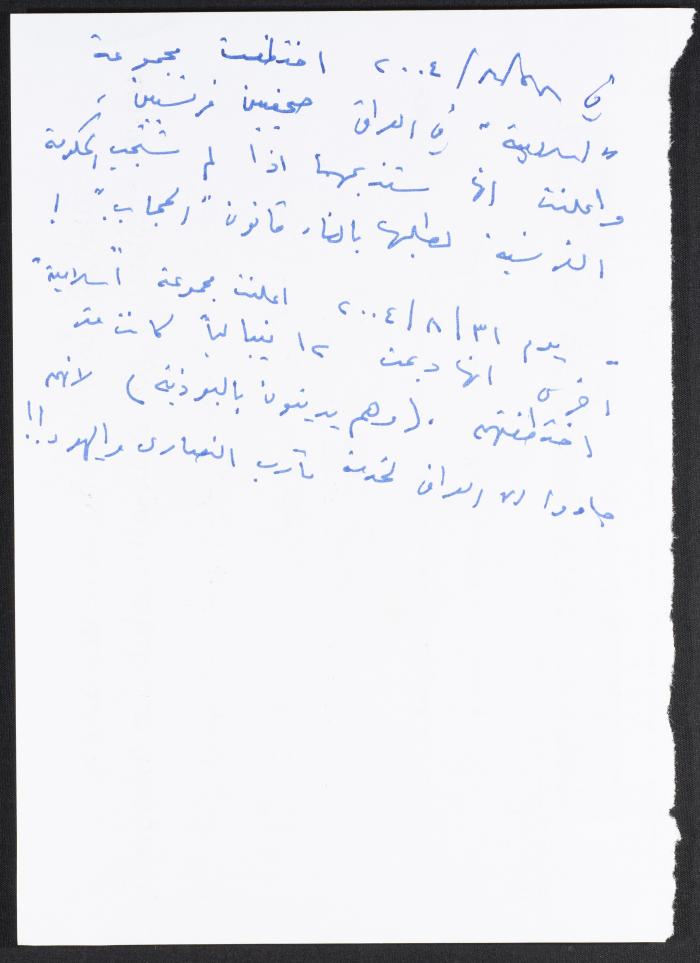 في ٢٨/٨/٢٠٠٤ اختطفت مجموعة
"اسلامية" في العراق صحفيين فرنسيين،
واعلنت انها ستذبحهما اذا لم تستجب الحكومة
الفرنسية لطلبها بالغاء قانون "الحجاب" !
- يوم ٣١/٨/٢٠٠٤ اعلنت مجموعة "اسلامية"
اخرى انها ذبحت ١٢ نيبالياً كانت قد
اختطفتهم. (وهم يدينون بالبوذية) لانهم
جاءوا الى العراق لخدمة مآرب النصارى واليهود!!